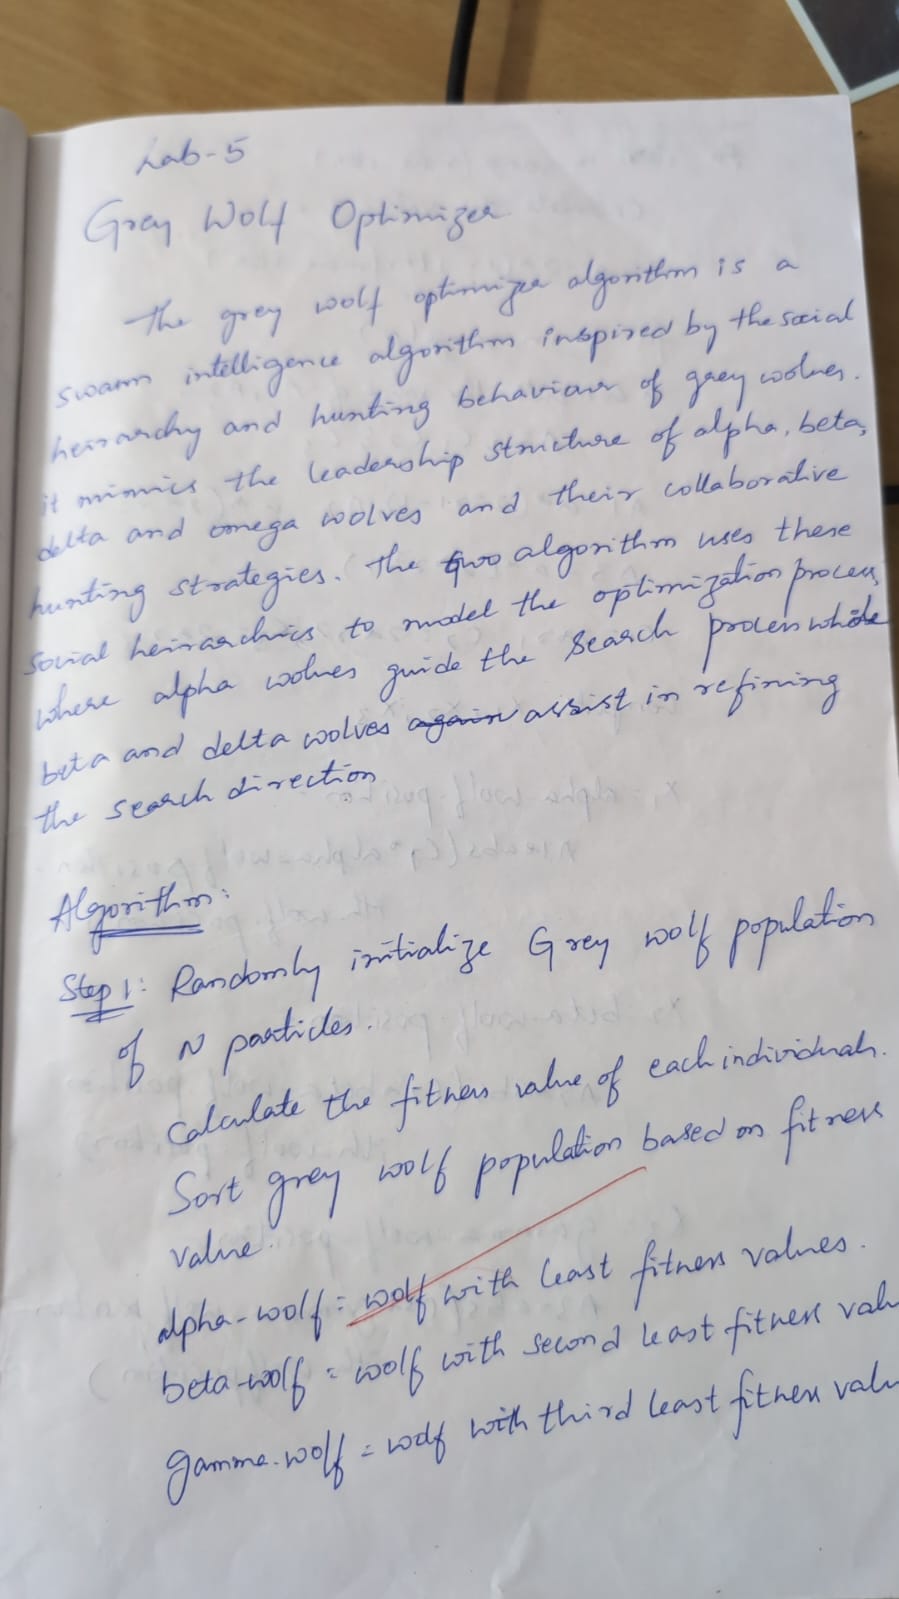 Lab-5
Grey Wolf Optimizer
The grey wolf optimizer algorithm is a
swarm intelligence algorithm inspired by the social
heirarchy and hunting behaviour of grey wolves.
it mimics the leadership structure of alpha, beta,
delta and omega wolves and their collaborative
hunting strategies. The algorithm uses these
social heirarchies to model the optimization process,
where alpha wolves guide the search process while
beta and delta wolves again assist in refining
the search direction
Algorithm:
Step 1: Randomly initialize Grey wolf population
of N particles.
Calculate the fitness value of each individuals.
Sort grey wolf population based on fitness
value.
alpha-wolf = wolf with least fitness values.
beta-wolf = wolf with second least fitness valu
gamma-wolf = wolf with third least fitness valu